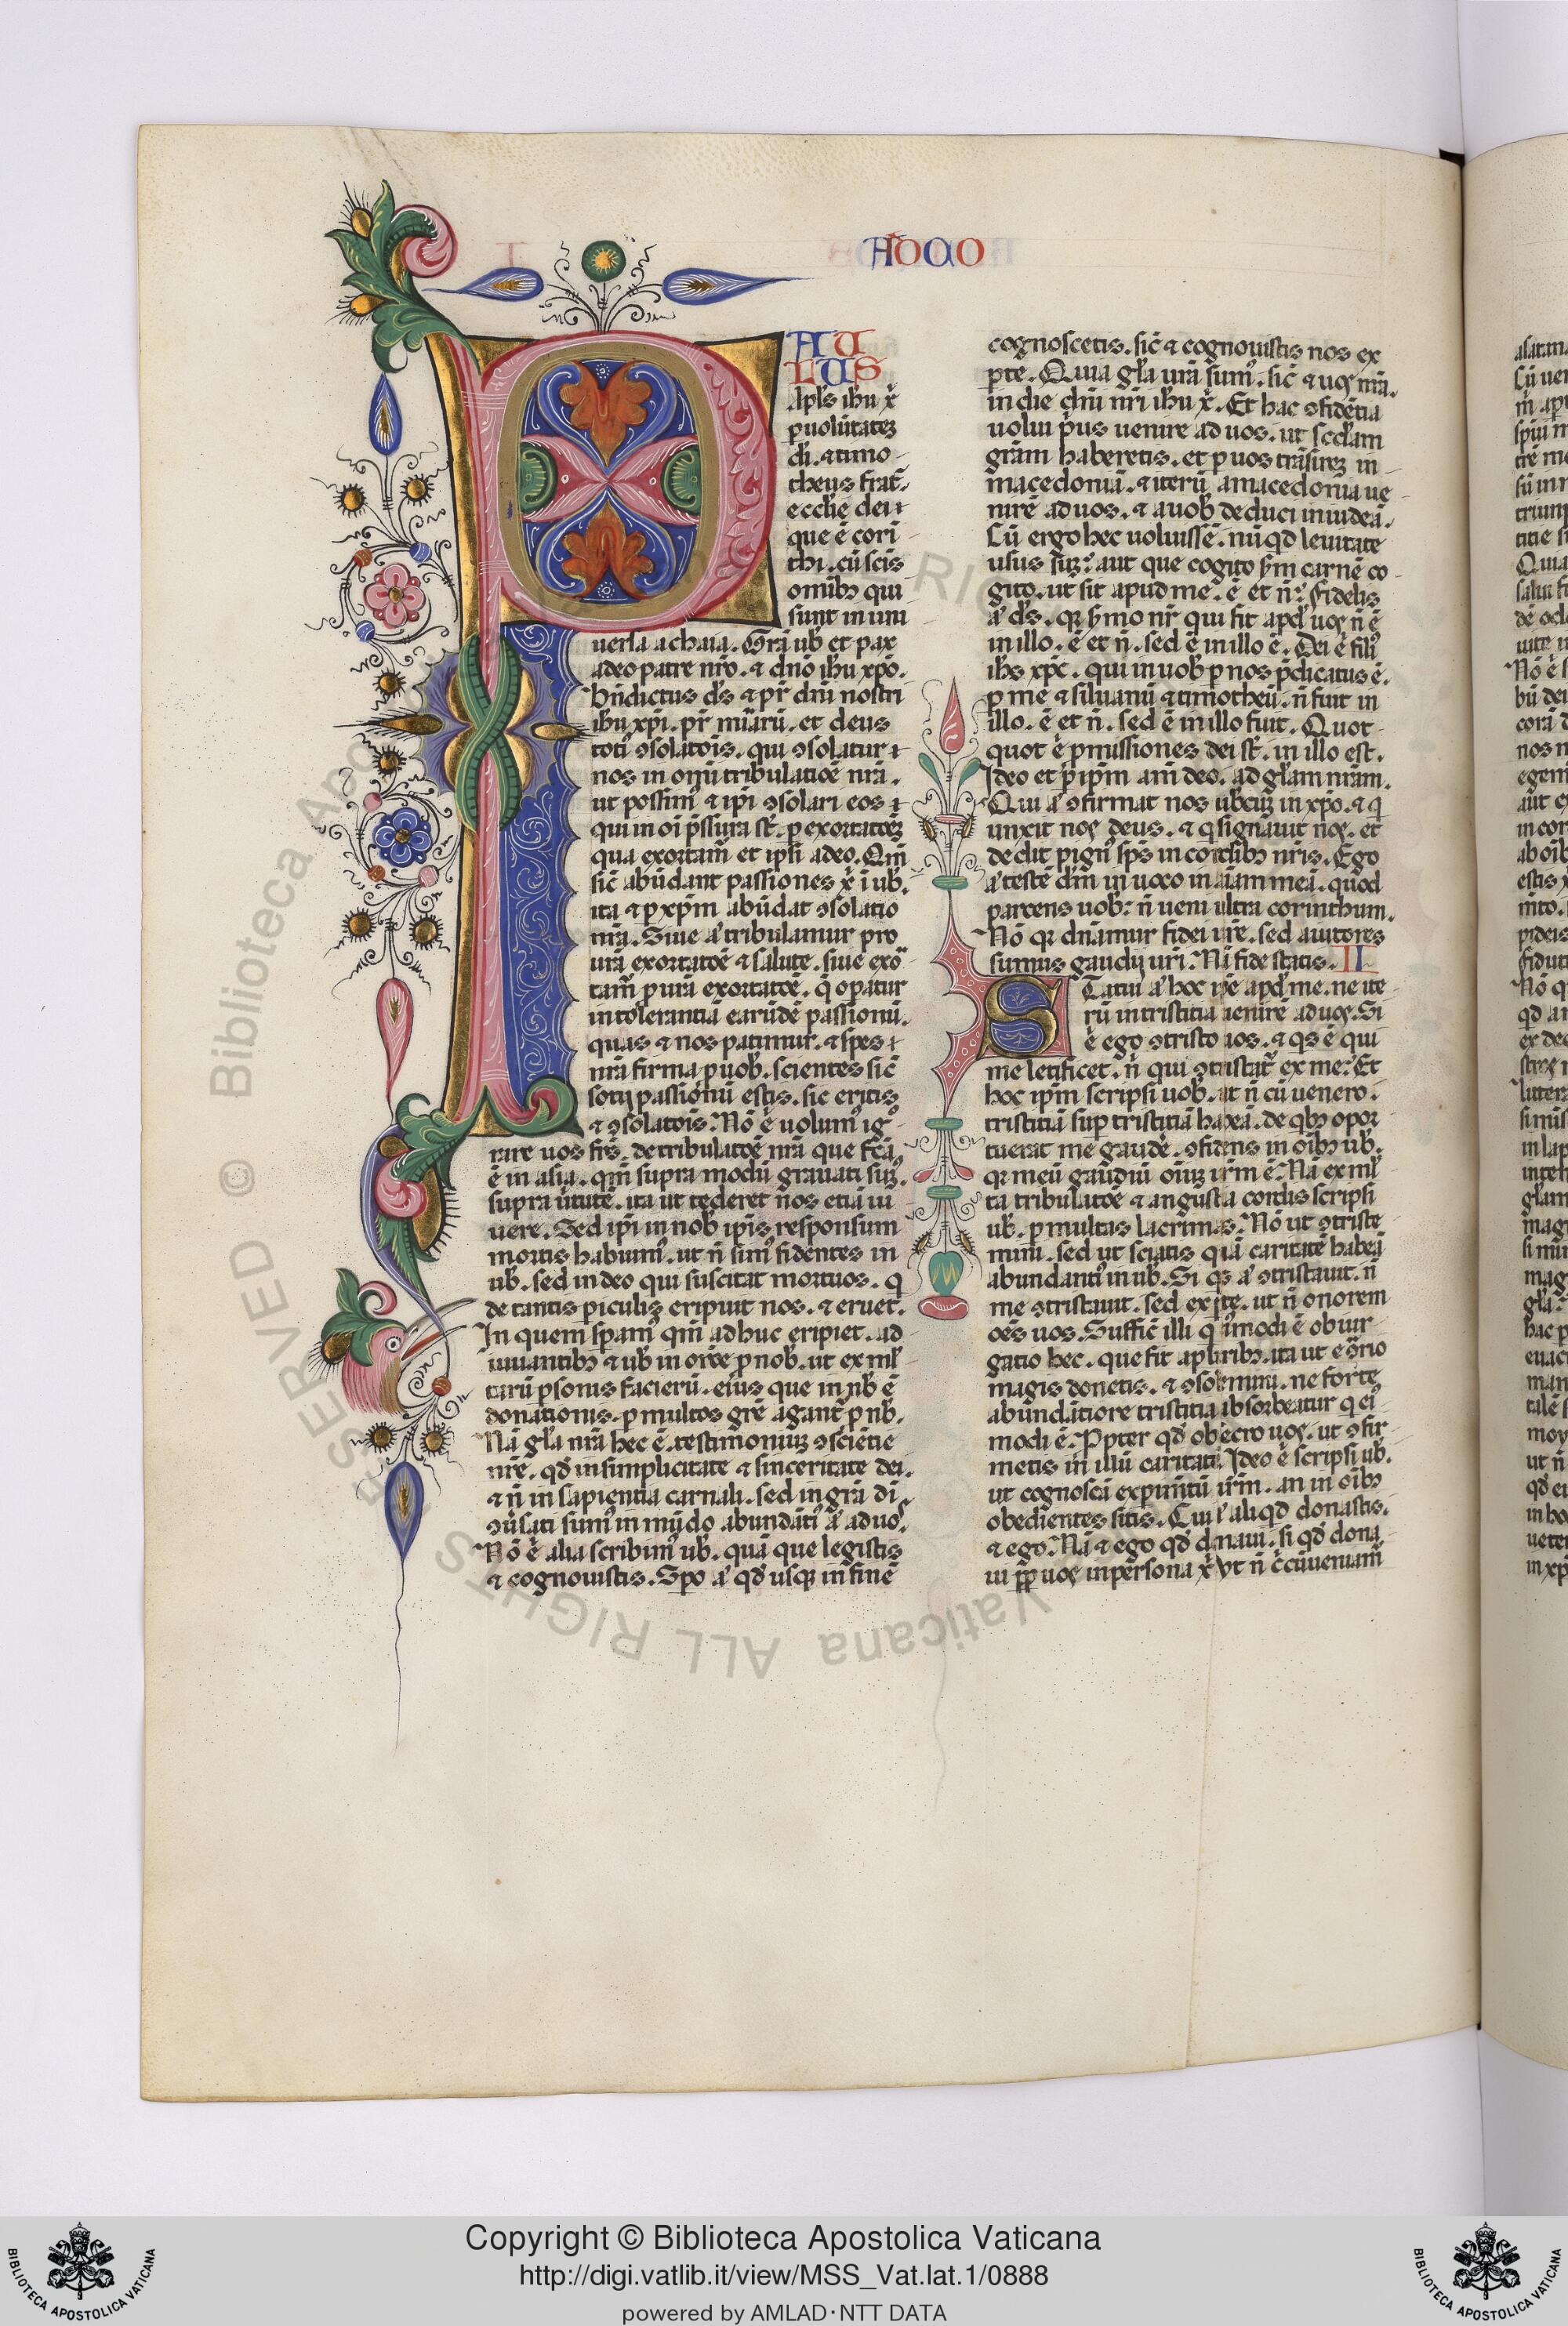 ADCO
AU
LUS
Apl's ihu x̄
p uolūtateʒ
di. ⁊ timo-
theus frat̄.
ecclīe dei
que ē cori-
thi. cū scīs
omībꝫ qui
sunt in uni
uersa achaia. Grā ub̄ et pax
a deo patre nr̄o. ⁊ dn̄o ihu xpō.
Bn̄dictus d̄s ⁊ pr̄ dn̄i nostri
ihu xp̄i. pr̄ mīaꝝ. et deus
totiꝰ ꝯsolatōis. qui ꝯsolatur
nos in om̄i tribulatiōe nr̄a.
ut possimꝰ ⁊ ip̄i ꝯsolari eos
qui in oī p̄ssura st̄. p exortatōeʒ
qua exortam̄ et ipsi a deo. Qm̄
sic̄ abūdant passiones x̄ i ub̄.
ita ⁊ p xp̄m abūdat ꝯsolatio
nr̄a. Siue aͥ tribulamur pro
ur̄a exortatōe ⁊ salute. siue exo
tam̄ p ur̄a exortatōe. q̄ opatur
in tolerantiā earūdē passionū.
quas ⁊ nos patimur. ⁊ spes
nr̄a firma p uob̄. scientes sic̄
sotij passionū estis. sic eritis
⁊ ꝯsolatōis. Nō ē uolumꝰ ig
rare uos fr̄s. de tribulatōe nr̄a que fc̄a
ē in asia. qm̄ supra modū grauati sūꝰ.
supra ūtutē. ita ut tederet nos etiā ui
uere. Sed ip̄i in nob̄ ip̄is responsum
mortis habuimꝰ. ut n̄ simꝰ fidentes in
ub̄. sed in deo qui suscitat mortuos. q
de tantis piculis eripuit nos. ⁊ eruet.
In quem spam̄ꝰ qm̄ adhuc eripiet. ad
iuuantibꝫ ⁊ ub̄ in or̄oe p nob̄. ut ex ml̄
tarū psonis facierū. eius que in nb̄ ē
donationis. p multos gr̄e agant̄ p nb̄.
Nā gl̄a nr̄a hec ē. testimoniuʒ ꝯsciētie
nr̄e. qd̄ in simplicitate ⁊ sinceritate dei.
⁊ n̄ in sapientia carnali. sed in grā di
ꝯūsati sumꝰ in mūdo abundātiꝰ aͥ ad uos.
Nō ē alia scribimꝰ ub̄. quā que legistis
⁊ cognouistis. Spo aͥ qd̄ usqꝫ in finē
cognoscetis. sic̄ ⁊ cognouistis nos ex
pte. Quia gl̄a ur̄a sumꝰ. sic̄ ⁊ uos nr̄a.
in die dn̄i nr̄i ihu x̄. Et hac ꝯfidētia
uolui p̄us uenire ad uos. ut sec̄dam
grām haberetis. et p uos trāsireʒ in
macedoniā. ⁊ iterū a macedonia ue
nirē ad uos. ⁊ a uob̄ deduci in iudeā.
Cū ergo hec uoluissē. nūqd̄ leuitate
usus sūʒ? aut que cogito s̄m carnē co
gito. ut sit apud me. ē et n̄? Fidelis
aͥ d̄s. qꝫ s̄mo nr̄ qui fit apd̄ uos n̄ ē
in illo. ē et n̄. sed ē in illo ē. Dei ē filiꝰ
ihs xp̄c. qui in uob̄ p nos p̄dicatus ē.
p me ⁊ siluanū ⁊ timotheū. n̄ fuit in
illo. ē et n̄. sed ē in illo fuit. Quot
quot ē pmissiones dei st̄. in illo est.
Ideo et p ip̄m am̄ deo. ad gl̄am nr̄am.
Qui aͥ ꝯfirmat nos ub̄cuʒ in xp̄o. ⁊ q
unxit nos deus. ⁊ q signauit nos. et
dedit pignꝰ sp̄s in cordibꝫ nr̄is. Ego
aͥ testē d̄m in uoco in aīam meā. quod
parcens uob̄: n̄ ueni ultra corinthum.
Nō qꝫ dn̄amur fidei ur̄e. sed auitores
sumus gaudij ur̄i. Nā fide statis. II
Statui aͥ hoc ip̄e apd̄ me. ne ite
rū in tristitia uenirē ad uos. Si
ē ego ꝯtristo uos. ⁊ qs ē qui
me letificet. n̄ qui ꝯtristat̄ ex me? Et
hoc ip̄m scripsi uob̄. ut n̄ cū uenero.
tristitiā sup tristitiā habeā. de qbꝫ opor
tuerat me gaudē. ꝯfidens in oībꝫ ub̄.
qꝫ meū gaudiū oīuʒ ur̄m ē. Nā ex ml̄
ta tribulatōe ⁊ angustia cordis scripsi
ub̄. p multas lacrimas. Nō ut ꝯtriste
mini. sed ut sciatis quā caritatē habeā
abundantiꝰ in ub̄. Si qs aͥ ꝯtristauit. n̄
me ꝯtristauit. sed ex pte. ut n̄ onorem
oēs uos. Suffic̄ illi q iꝰmodi ē obiur
gatio hec. que fit a pluribꝫ. ita ut e ꝯͣrio
magis donetis. ⁊ ꝯsolemini. ne forte
abundātiore tristitia absorbeatur q eiꝰ
modi ē. Ppter qd̄ obsecro uos. ut ꝯfir
metis in illū caritatē. Ideo ē scripsi ub̄.
ut cognoscā expimtū ur̄m. an in oībꝫ
obedientes sitis. Cui aͥ aliqd̄ donastis.
⁊ ego. Nā ⁊ ego qd̄ donaui. si qd̄ dona
ui pp̄ uos in persona x̄. Ut n̄ c̄cūueniam̄
Copyright © Biblioteca Apostolica Vaticana
http://digi.vatlib.it/view/MSS_Vat.lat.1/0888
powered by AMLAD·NTT DATA